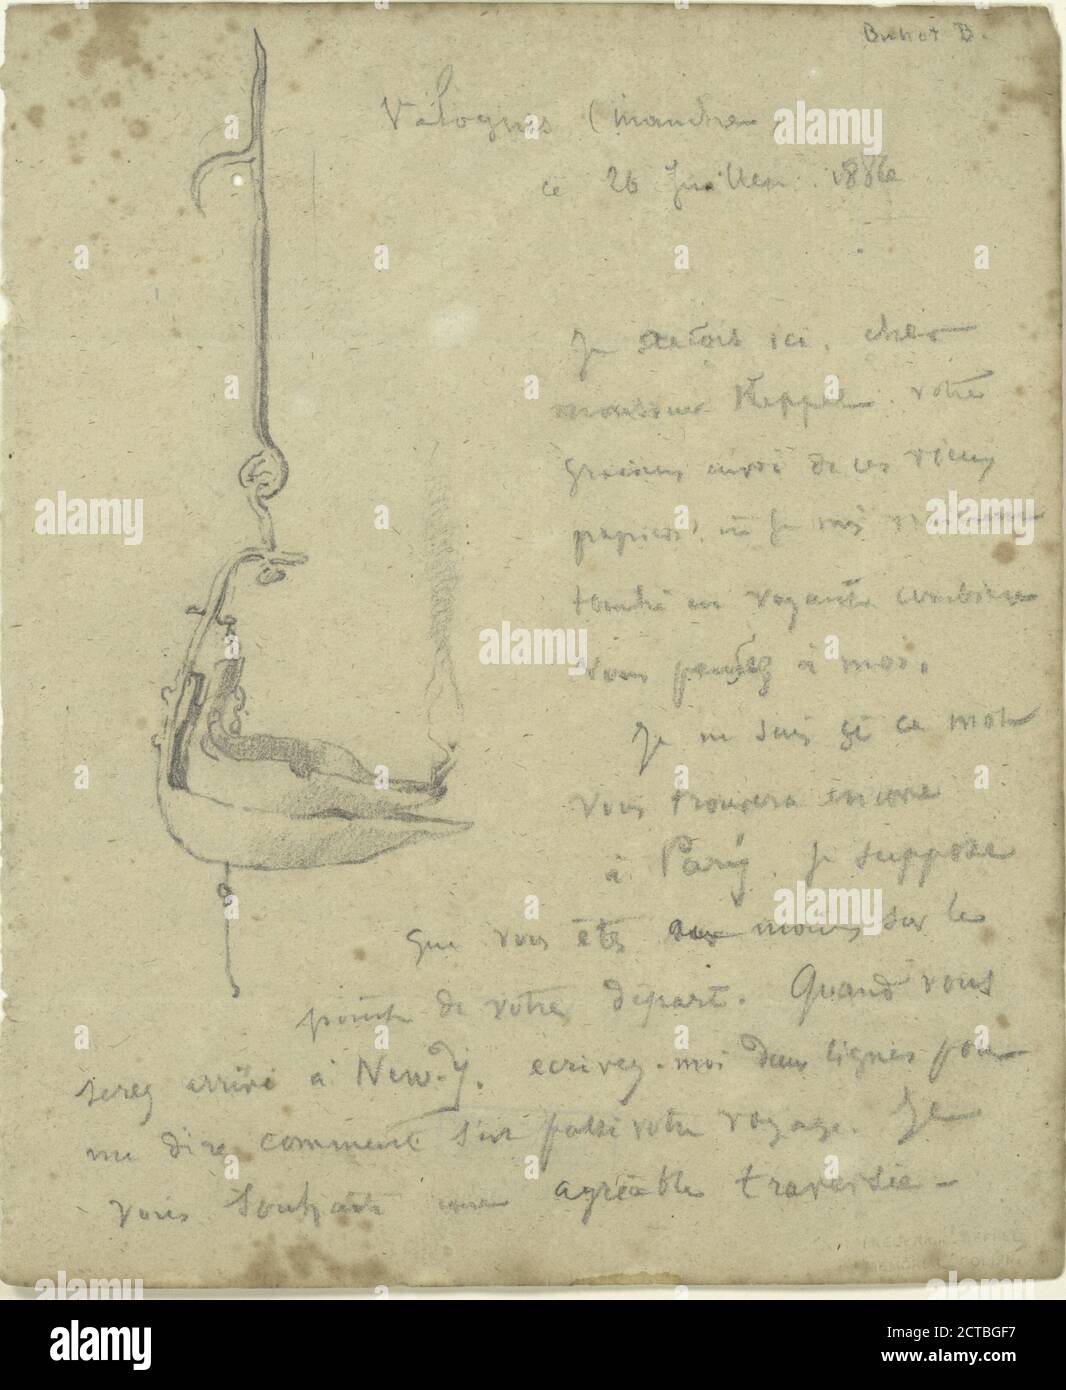 Buhot B.
Valognes (manche)
ce 26 Juillet. 1886
Je reçois ici, cher
monsieur Keppel votre
gracieux envoi de ces vieux
papiers, et je suis vraiment
touché en voyant combien
vous pensez à moi.
Je ne sais si ce mot
vous trouvera encore
à Paris. je suppose
que vous êtes au moins sur le
point de votre départ. Quand vous
serez arrivé à New-Y. ecrivez-moi deux lignes pour
me dire comment s'est passé votre voyage. Je
vous souhaite une agréable traversée -
alamy
alamy
alamy
alamy
Image ID: 2CTBGF7
www.alamy.com